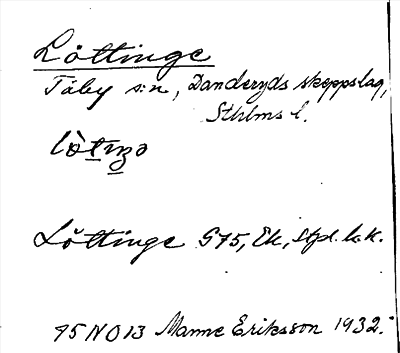 Löttinge
Täby s:n, Danderyds skeppslag,
Sthlms l.
Löttinge G75, Ek, Stpl. k.k.
75 NO 13 Manne Eriksson 1932.